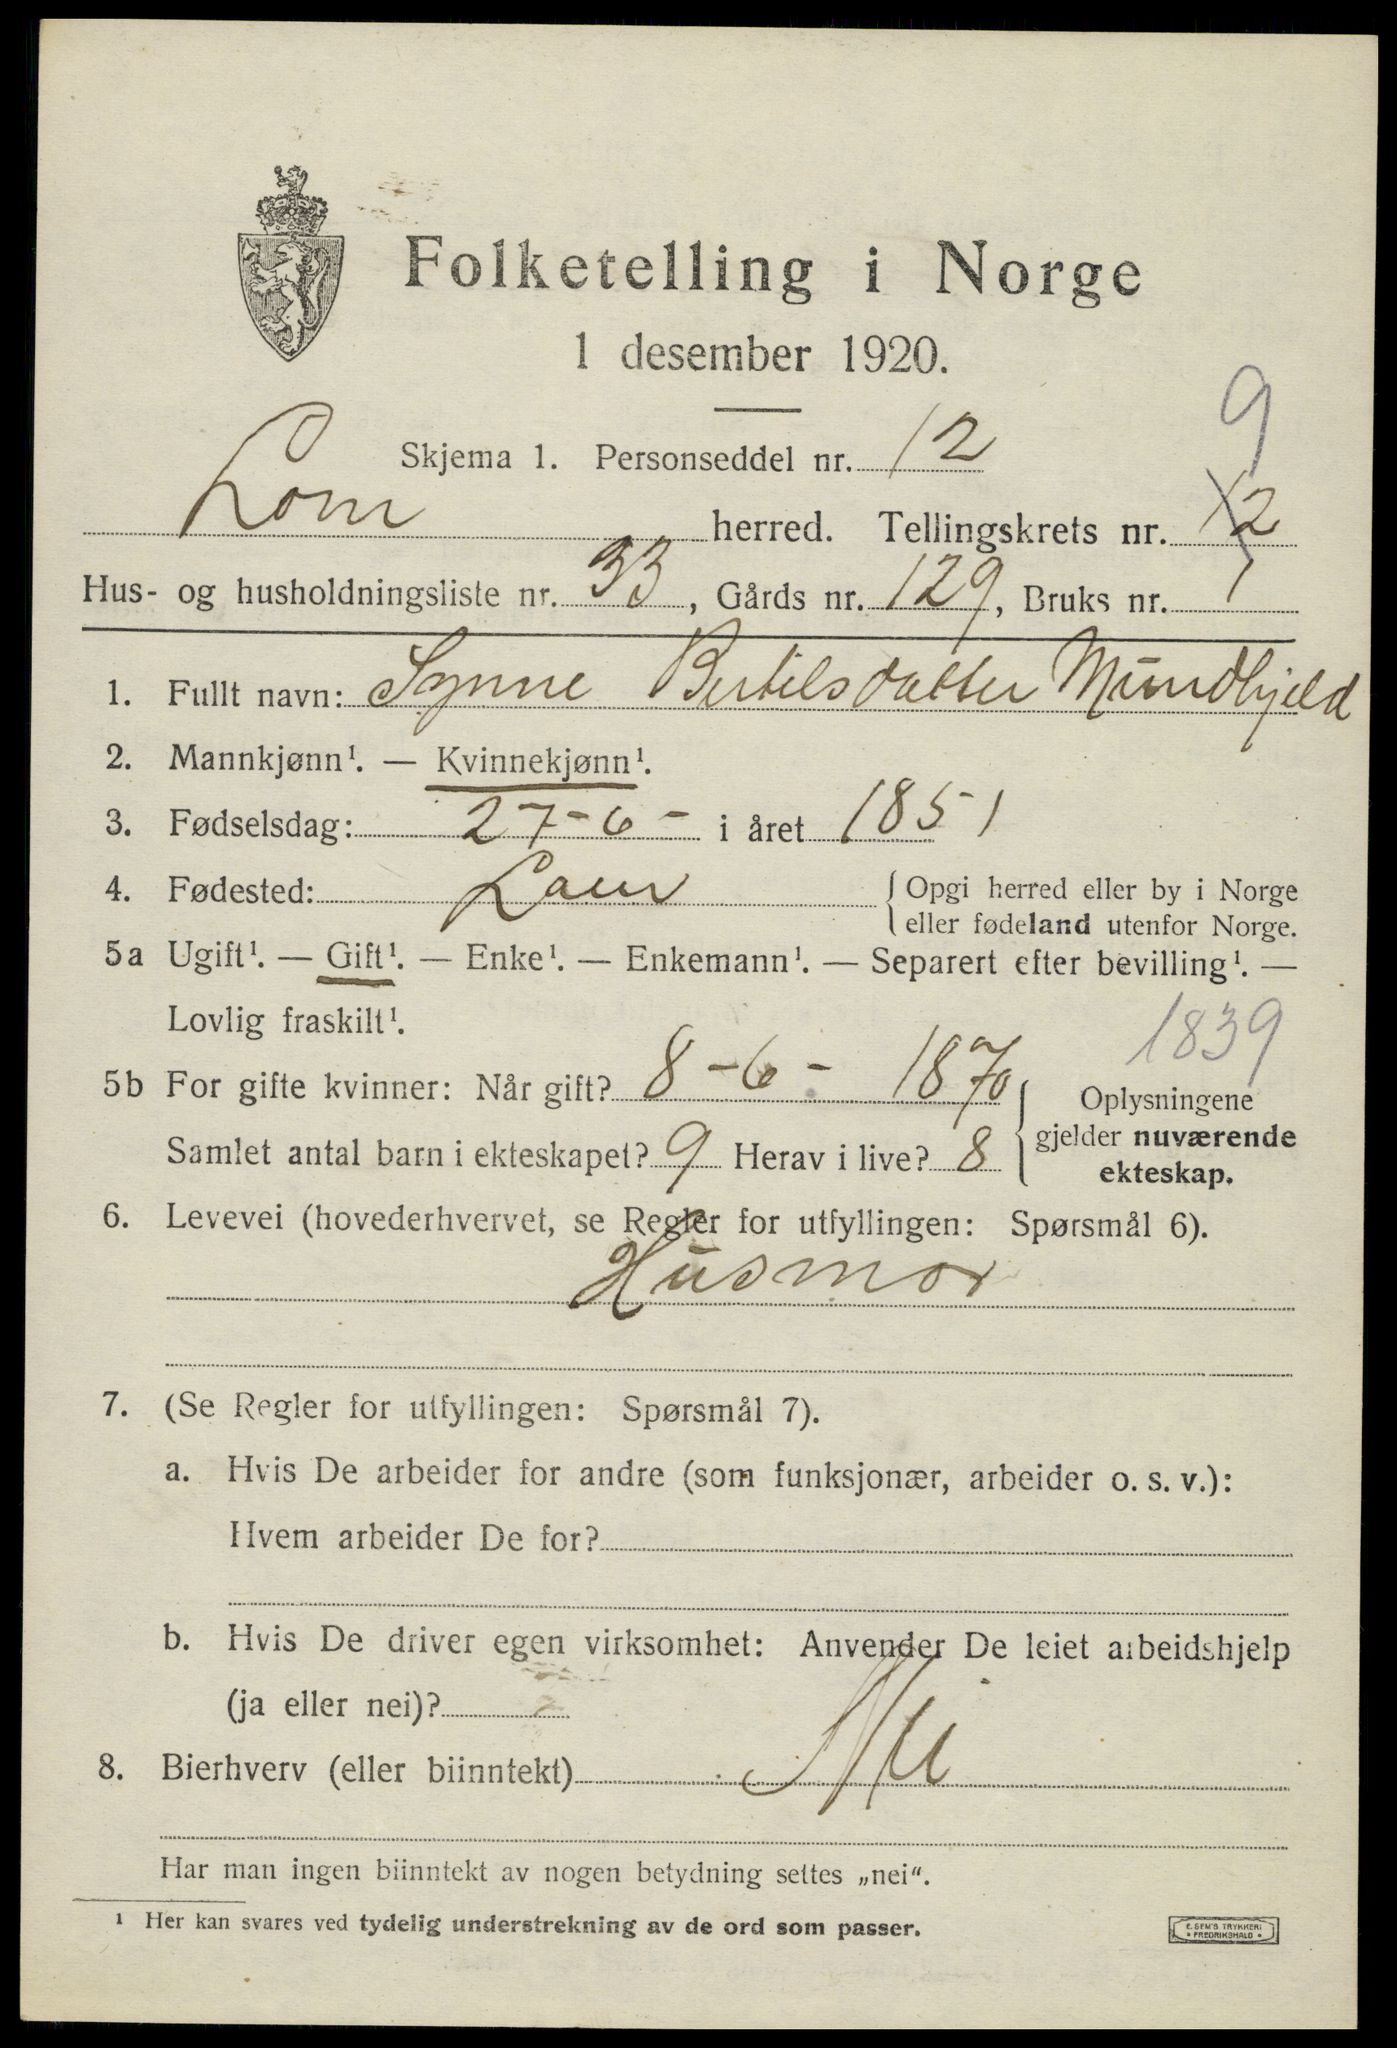 Folketelling i Norge
1 desember 1920.
9
Skjema 1. Personseddel nr. 12
Lom herred. Tellingskrets nr. 12
Hus- og husholdningsliste nr. 33, Gårds nr. 129, Bruks nr. 1
1. Fullt navn: Synne Bertilsdatter Mundhjeld
2. Mannkjønn¹. — Kvinnekjønn¹.
3. Fødselsdag: 27-6- i året 1851
4. Fødested: Lom { Opgi herred eller by i Norge
eller fødeland utenfor Norge.
5a Ugift¹. — Gift¹. — Enke¹. — Enkemann¹. — Separert efter bevilling¹. —
Lovlig fraskilt¹.
1839
5b For gifte kvinner: Når gift? 8-6- 1870
Samlet antal barn i ekteskapet? 9 Herav i live? 8
Oplysningene
gjelder nuværende
ekteskap.
6. Levevei (hovederhvervet, se Regler for utfyllingen: Spørsmål 6).
Husmor
7. (Se Regler for utfyllingen: Spørsmål 7).
a. Hvis De arbeider for andre (som funksjonær, arbeider o. s. v.):
Hvem arbeider De for?
b. Hvis De driver egen virksomhet: Anvender De leiet arbeidshjelp
(ja eller nei)?
8. Bierhverv (eller biinntekt) Nei
Har man ingen biinntekt av nogen betydning settes „nei“.
¹ Her kan svares ved tydelig understrekning av de ord som passer.
E. SEM'S TRYKKERI
• FREDRIKSHALD •